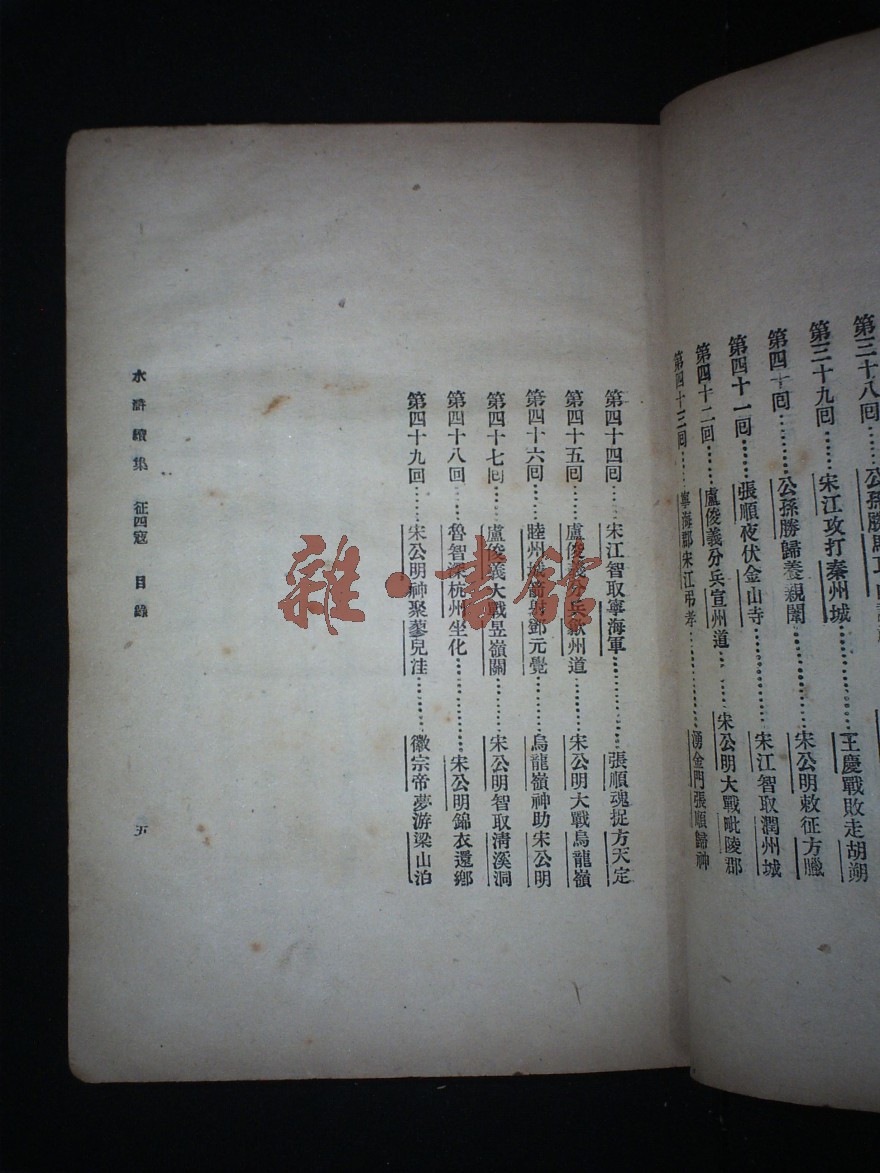 第三十八回……公孫勝馬
第三十九回……宋江攻打秦州城……王慶戰敗走胡朔
第四十回……公孫勝歸養親闈……宋公明敕征方臘
第四十一回……張順夜伏金山寺……宋江智取潤州城
第四十二回……盧俊義分兵宣州道……宋公明大戰毗陵郡
第四十三回……寧海郡宋江弔孝……湧金門張順歸神
第四十四回……宋江智取寧海軍……張順魂捉方天定
第四十五回……盧俊義分兵歙州道……宋公明大戰烏龍嶺
第四十六回……睦州城箭射鄧元覺……烏龍嶺神助宋公明
第四十七回……盧俊義大戰昱嶺關……宋公明智取清溪洞
第四十八回……魯智深杭州坐化……宋公明錦衣還鄉
第四十九回……宋公明神聚蓼兒洼……徽宗帝夢游梁山泊
水滸續集 征四寇 目錄 五
雜·書館